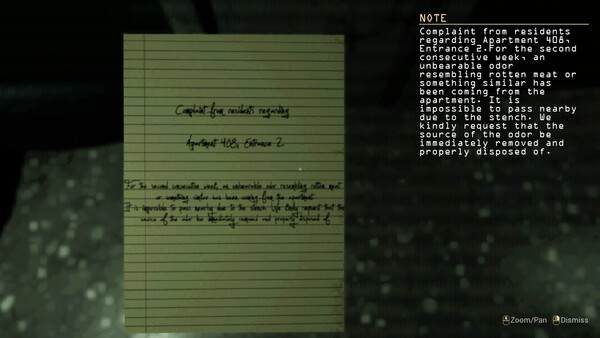 NOTE
Complaint from residents
regarding Apartment 408,
Entrance 2.For the second
consecutive week, an
unbearable odor
resembling rotten meat or
something similar has
been coming from the
apartment. It is
impossible to pass nearby
due to the stench. We
kindly request that the
source of the odor be
immediately removed and
properly disposed of.
Complaint from residents regarding
Apartment 408, Entrance 2
For the second consecutive week, an unbearable odor resembling rotten meat
or something similar has been coming from the apartment
It is impossible to pass nearby due to the stench. We kindly request that the
source of the odor be immediately removed and properly disposed of
Zoom/Pan Dismiss